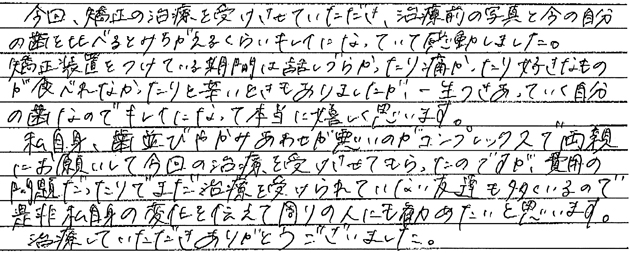 今回、矯正の治療を受けさせていただき、治療前の写真と今の自分
の歯を比べるとみちがえるくらいキレイになっていて感動しました。
矯正装置をつけている期間は話しづらかったり痛かったり好きなもの
が食べれなかったりと辛いときもありましたが一生つきあっていく自分
の歯なのでキレイになって本当に嬉しく思います。
私自身、歯並びやかみあわせが悪いのがコンプレックスで両親
にお願いして今回の治療を受けさせてもらったのですが、費用の
問題だったりでまだ治療を受けられていない友達も多くいるので
是非私自身の変化を伝えて周りの人にも勧めたいと思います。
治療していただきありがとうございました。